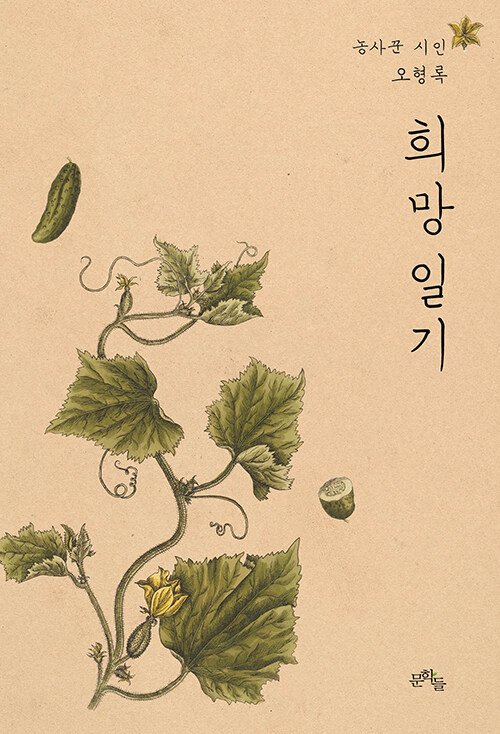 농사꾼 시인
오형록
희망일기
문학들